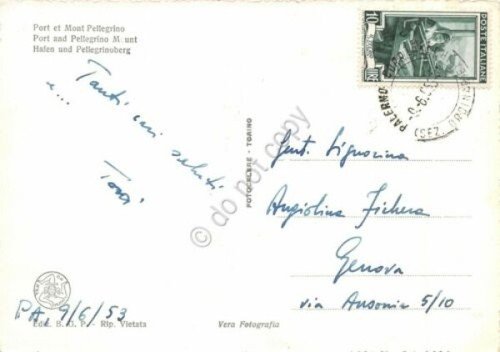 Port et Mont Pellegrino
Port and Pellegrino M unt
Hafen und Pellegrinoberg
Tanti cari saluti
e...
FOTOCELERE - TORINO
POSTE ITALIANE
10
LIRE
PALERMO
Gent. Signorina
Angiolina Fichera
Genova
via Ausonia 5/10
PA, 9/6/53
Ediz. B. O. P. - Rip. Vietata
Vera Fotografia
do not copy